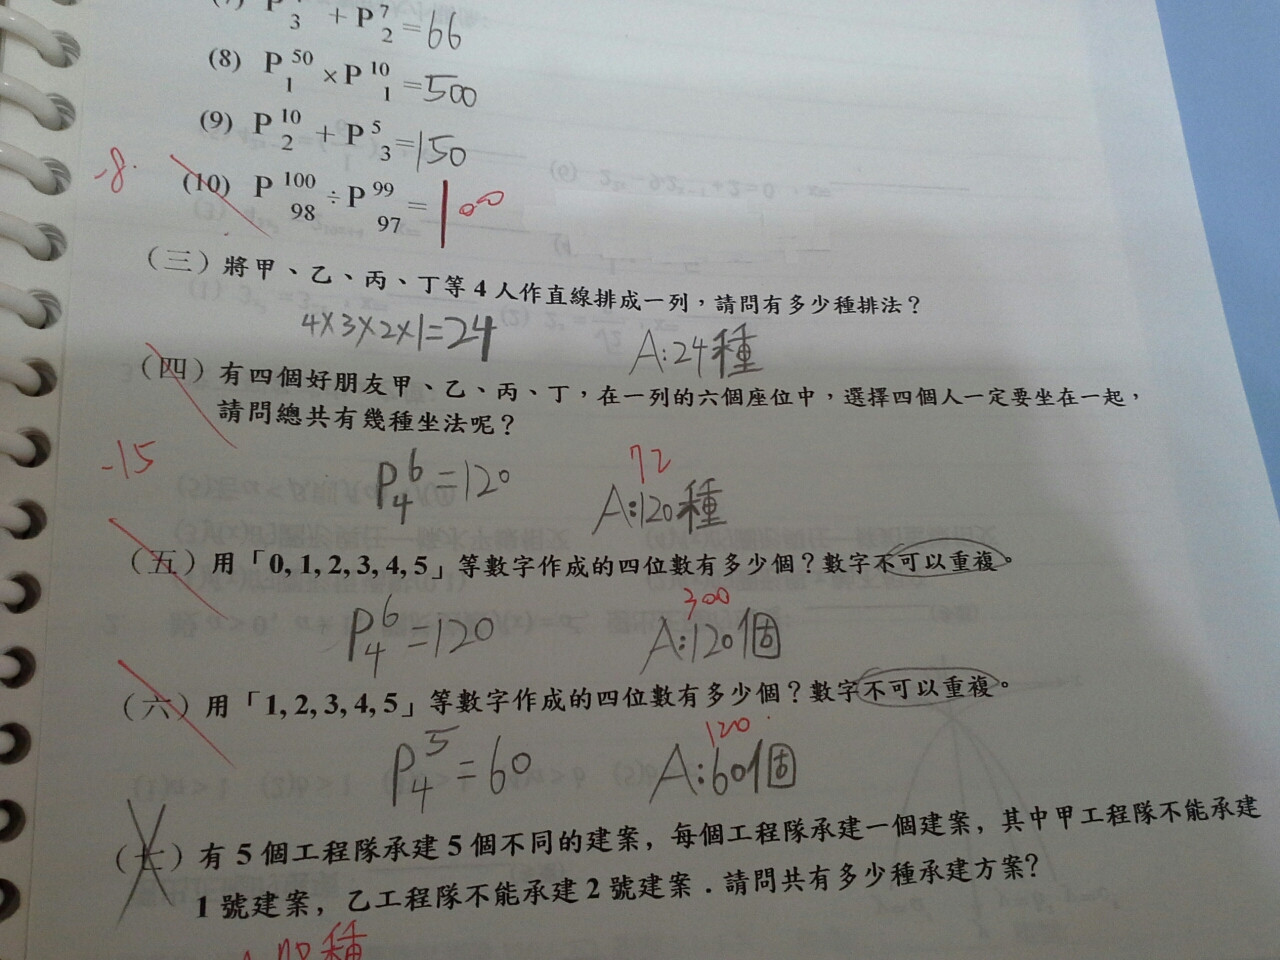 (7) P 3 + P 7 2 = 66
(8) P 50 1 × P 10 1 = 500
(9) P 10 2 + P 5 3 = 150
-8
(10) P 100 98 ÷ P 99 97 = 100
(三) 將甲、乙、丙、丁等 4 人作直線排成一列，請問有多少種排法？
4×3×2×1=24 A:24種
(四) 有四個好朋友甲、乙、丙、丁，在一列的六個座位中，選擇四個人一定要坐在一起，
請問總共有幾種坐法呢？
-15
72
P 6 4 = 120 A:120種
(五) 用「0, 1, 2, 3, 4, 5」等數字作成的四位數有多少個？數字不可以重複。
300
P 6 4 = 120 A:120個
(六) 用「1, 2, 3, 4, 5」等數字作成的四位數有多少個？數字不可以重複。
120
P 5 4 = 60 A:60個
(七) 有 5 個工程隊承建 5 個不同的建案，每個工程隊承建一個建案，其中甲工程隊不能承建
1 號建案，乙工程隊不能承建 2 號建案．請問共有多少種承建方案？
種